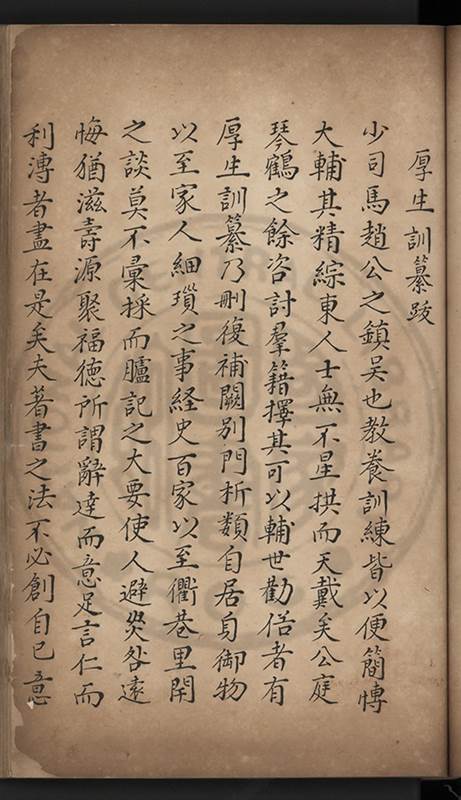 厚生訓纂跋
少司馬趙公之鎮吴也教養訓練皆以便簡愽
大輔其精綜東人士無不星拱而天戴矣公庭
琴鶴之餘咨討羣籍擇其可以輔世勸俗者有
厚生訓纂乃刪復補闕别門析類自居身御物
以至家人細瑣之事経史百家以至衢巷里閈
之談莫不彚採而臚記之大要使人避災咎遠
悔猶滋壽源聚福徳所謂辭達而意足言仁而
利溥者盡在是矣夫著書之法不必創自已意